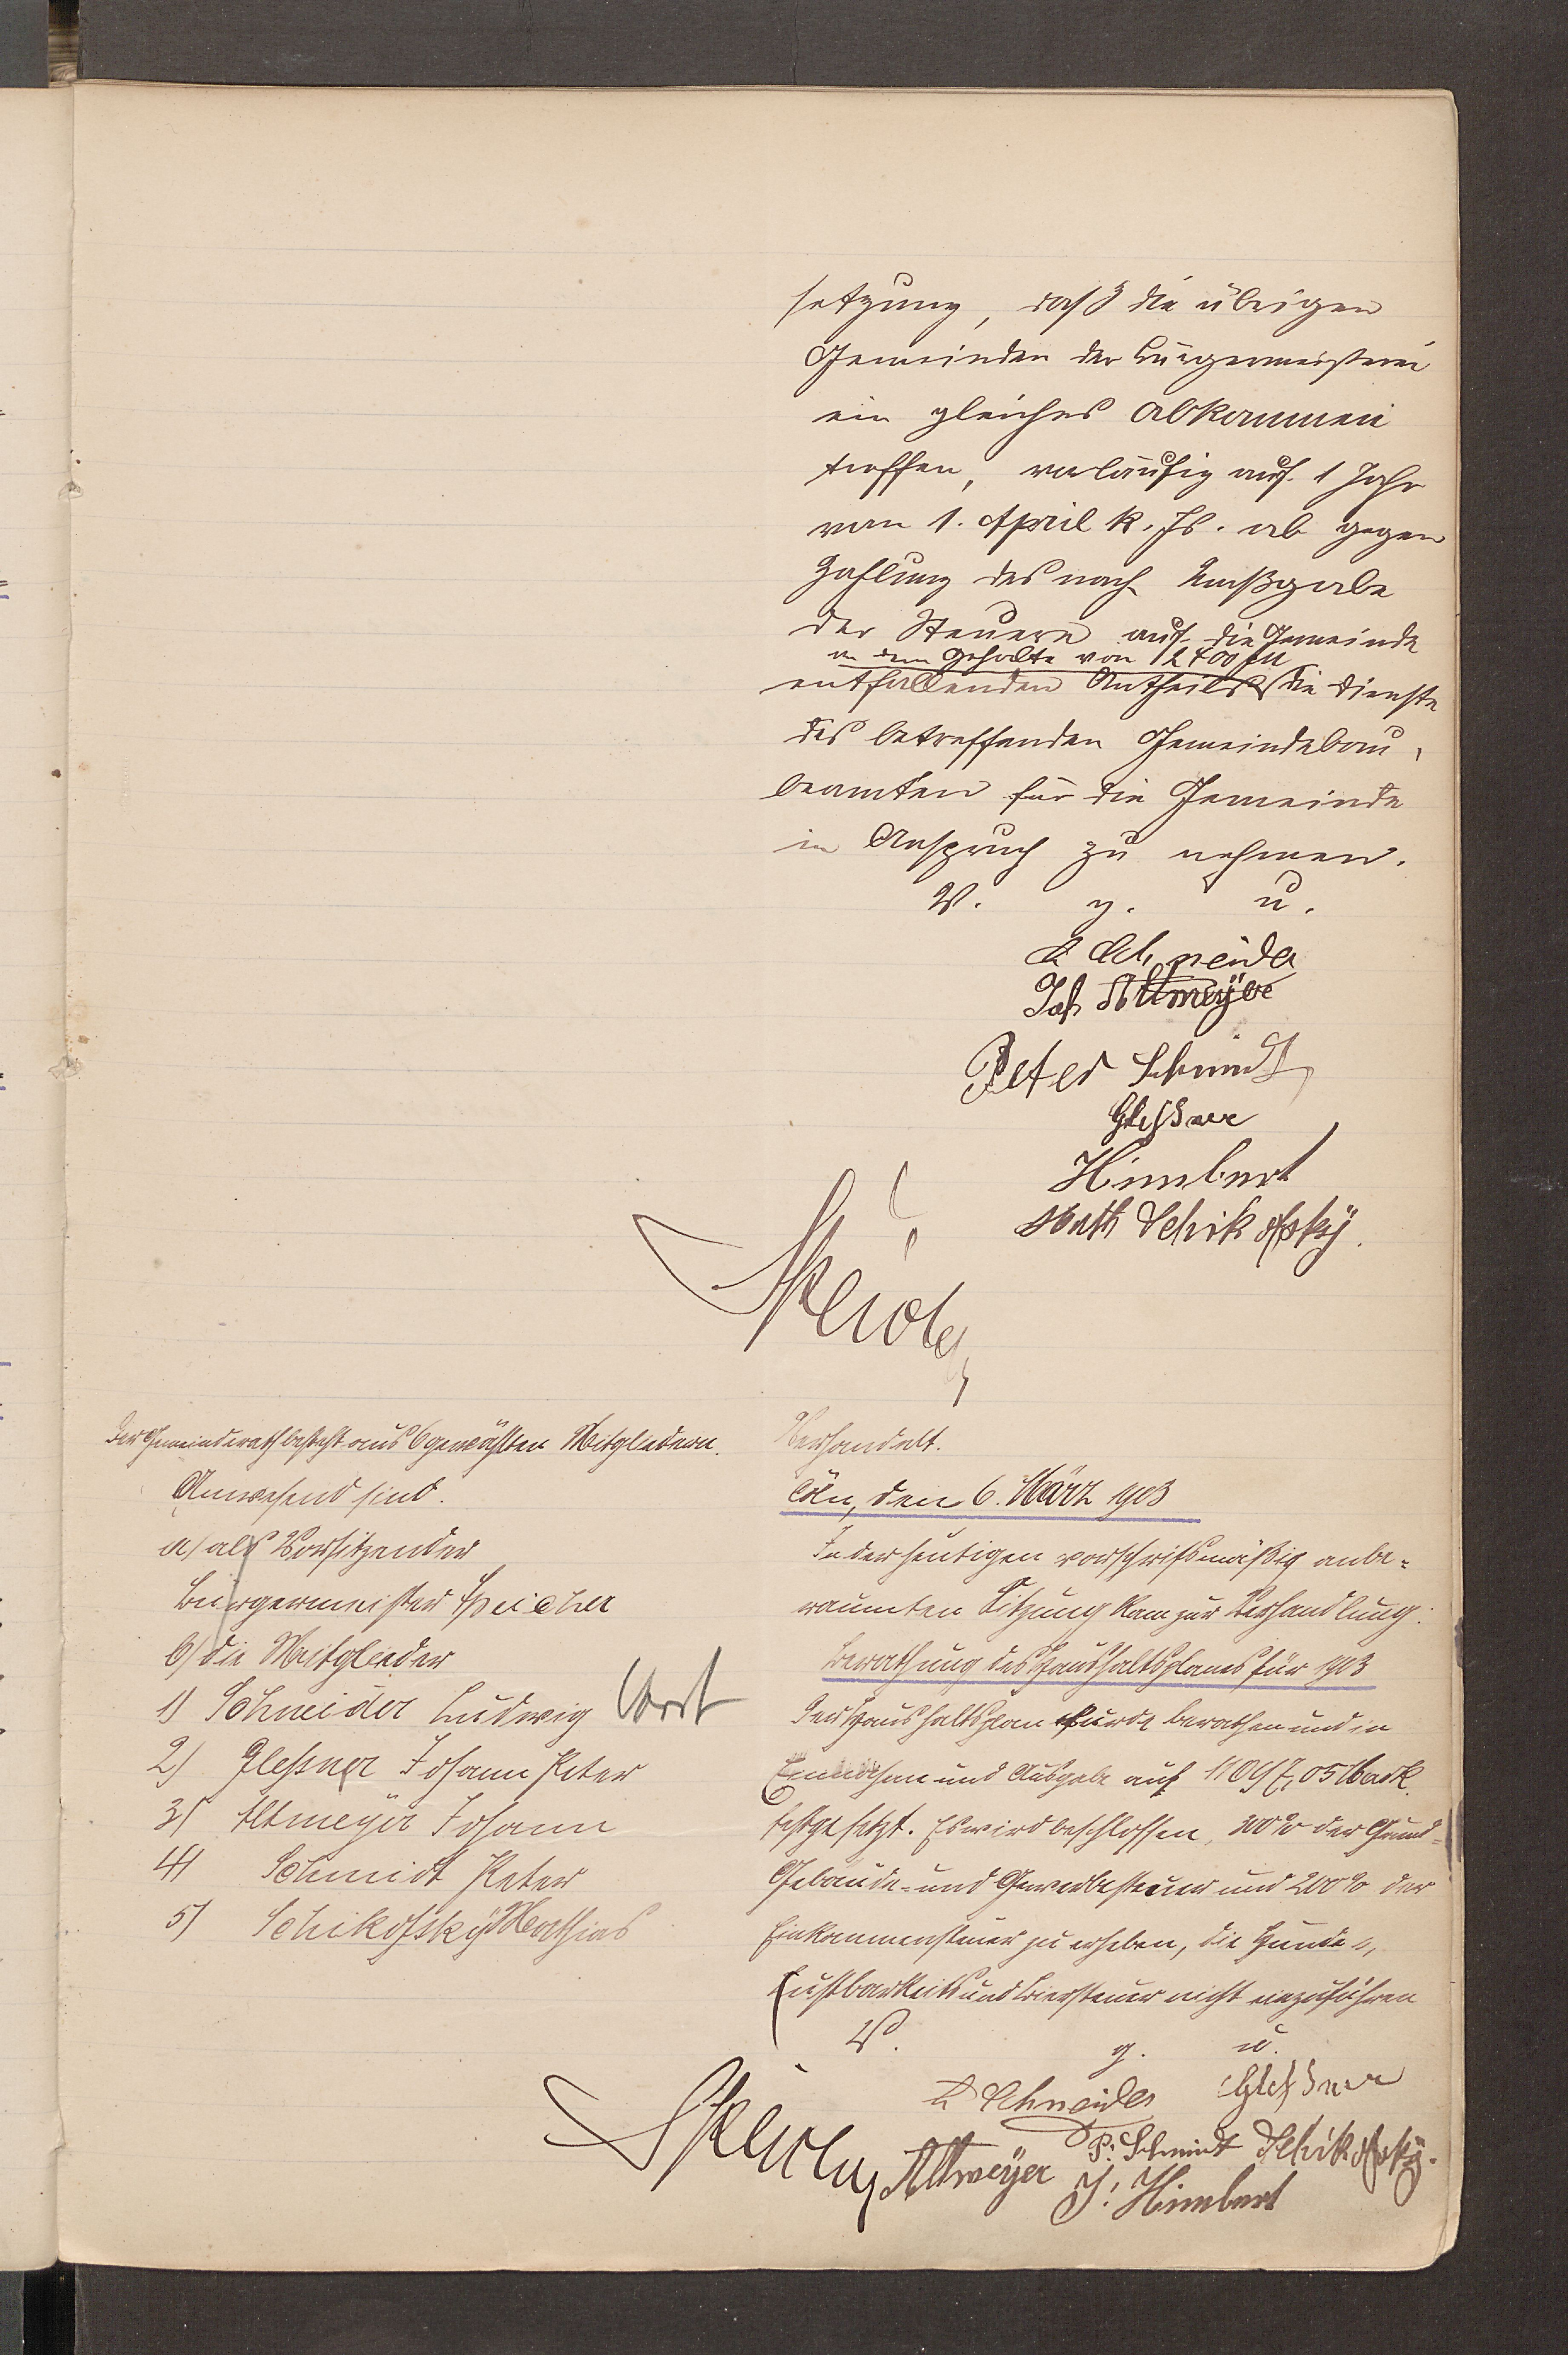 setzung, daß die übrigen
Gemeinden der Bürgermeisterei
ein gleiches Abkommen
treffen, vorläufig auf 1 Jahr
vom 1. April k. Js. ab gegen
Zahlung des nach Maßgabe
der Steuern auf die Gemeinde
an dem Gehalte von 2400 M
entfallenden Antheils die Dienste
des betreffenden Gemeindebau-
beamten für die Gemeinde
in Anspruch zu nehmen.
V. g. u.
L Schneider
Joh Altmeyer
Peter Schmidt
Gleßner
Himbert
Math Schikofsky.
Speicher
Der Gemeinderath besteht aus 6 gewählten Mitgliedern.
Anwesend sind.
a) als Vorsitzender
Bürgermeister Speicher
b) die Mitglieder
1) Schneider Ludwig
2) Glessner Johann Peter
3) Altmeyer Johann
4) Schmidt Peter
5) Schikofsky Mathias
Verhandelt.
Cöln, den 6. März 1903
In der heutigen vorschriftsmäßig anbe-
raumten Sitzung kam zur Verhandlung:
Berathung des Haushaltsplanes für 1903
Der Haushaltsplan wurde berathen und in
Einnahme und Ausgabe auf 11097,05 Mark
festgesetzt. Es wird beschlossen, 200% der Grund-
Gebäude- und Gewerbesteuer und 200% der
Einkommensteuer zu erheben, die Hunde-,
Lustbarkeits und Biersteuer nicht einzuführen
V. g. u.
L Schneider Gleßner
Speicher Altmeyer P. Schmidt Schikofsky.
J. Himbert